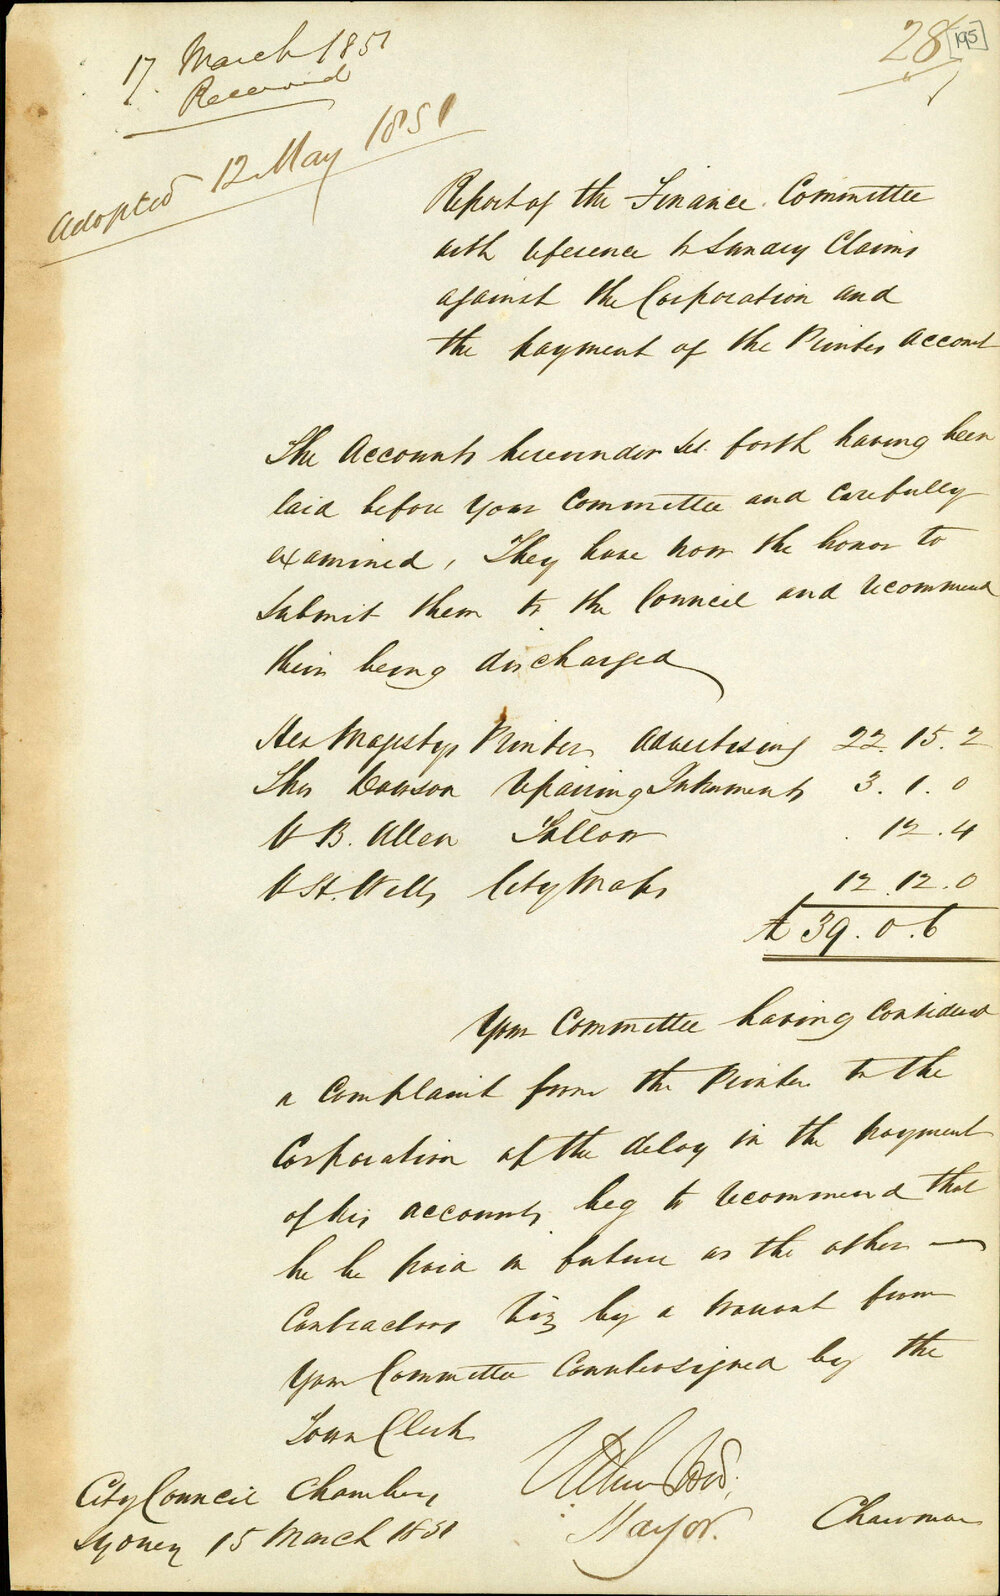 17 March 1851
Received
Adopted 12 May 1851
28
195
Report of the Finance Committee
with reference to Sundry Claims
against the Corporation and
the payment of the Printers Account
The Accounts hereunder set forth having been
laid before your Committee and carefully
examined, They have now the honor to
submit them to the Council and recommend
their being discharged
Her Majestys Printer Advertising 22.15.2
Thos Dawson repairing Instruments 3.1.0
W B. Allen Tallow 12.4
W H. Wells City Maps 12.12.0
£39.0.6
Your Committee having considered
a Complaint from the Printer to the
Corporation of the delay in the payment
of his accounts beg to recommend that
he be paid in future as the other
Contractors viz by a warrant from
Your Committee Countersigned by the
Town Clerk
City Council Chambers
Sydney 15 March 1851
Mayor. Chairman